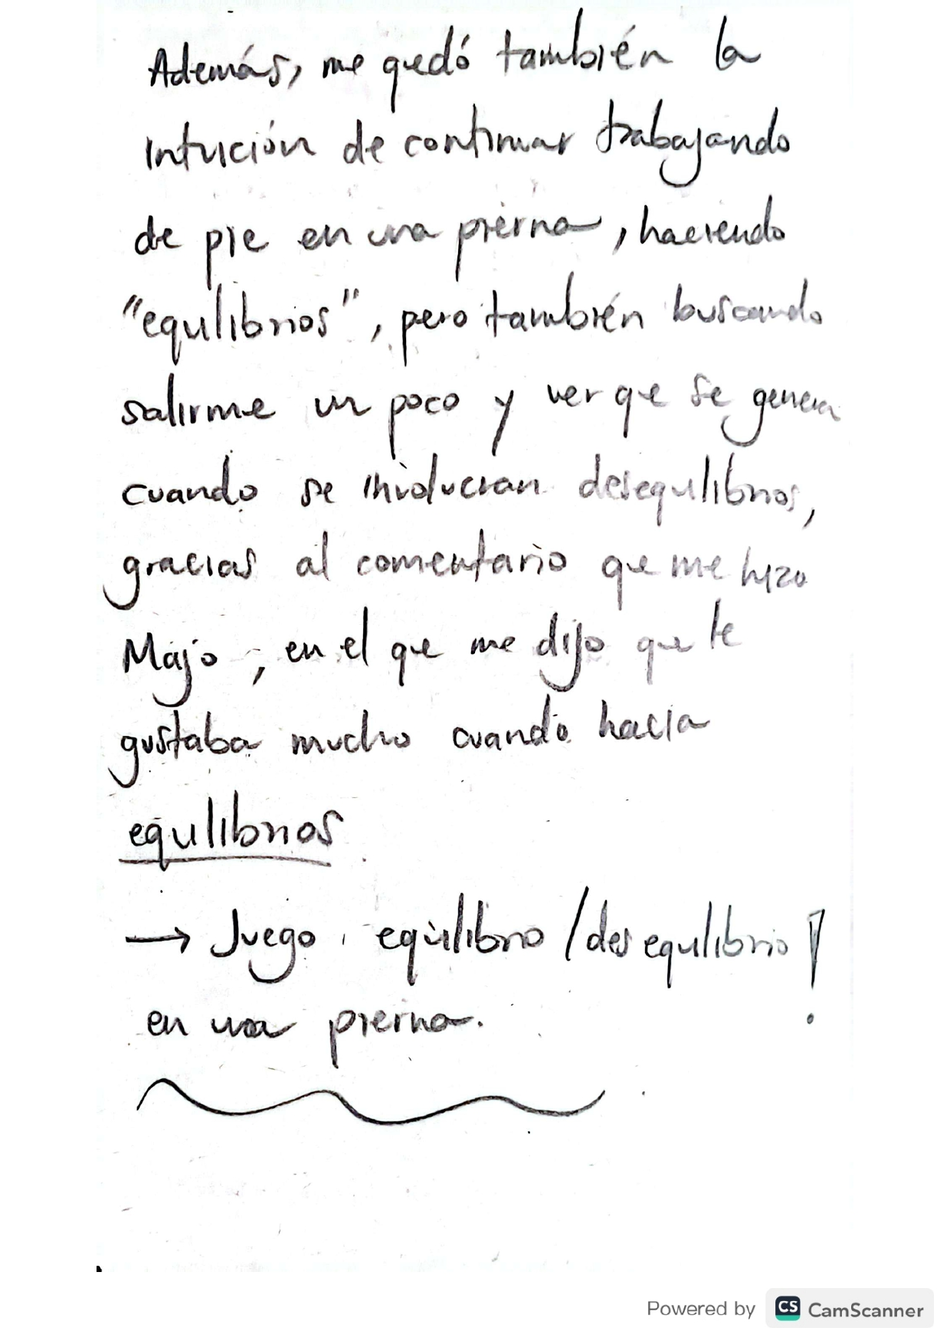 Además, me quedó también la
intuición de continuar trabajando
de pie en una pierna, haciendo
"equlibrios", pero también buscando
salirme un poco y ver que se genera
cuando se involucran desequlibrios,
gracias al comentario que me hizo
Majo, en el que me dijo que le
gustaba mucho cuando hacía
equlibrios
→ Juego equilibrio / desequlibrio !
en una pierna.
Powered by CS CamScanner